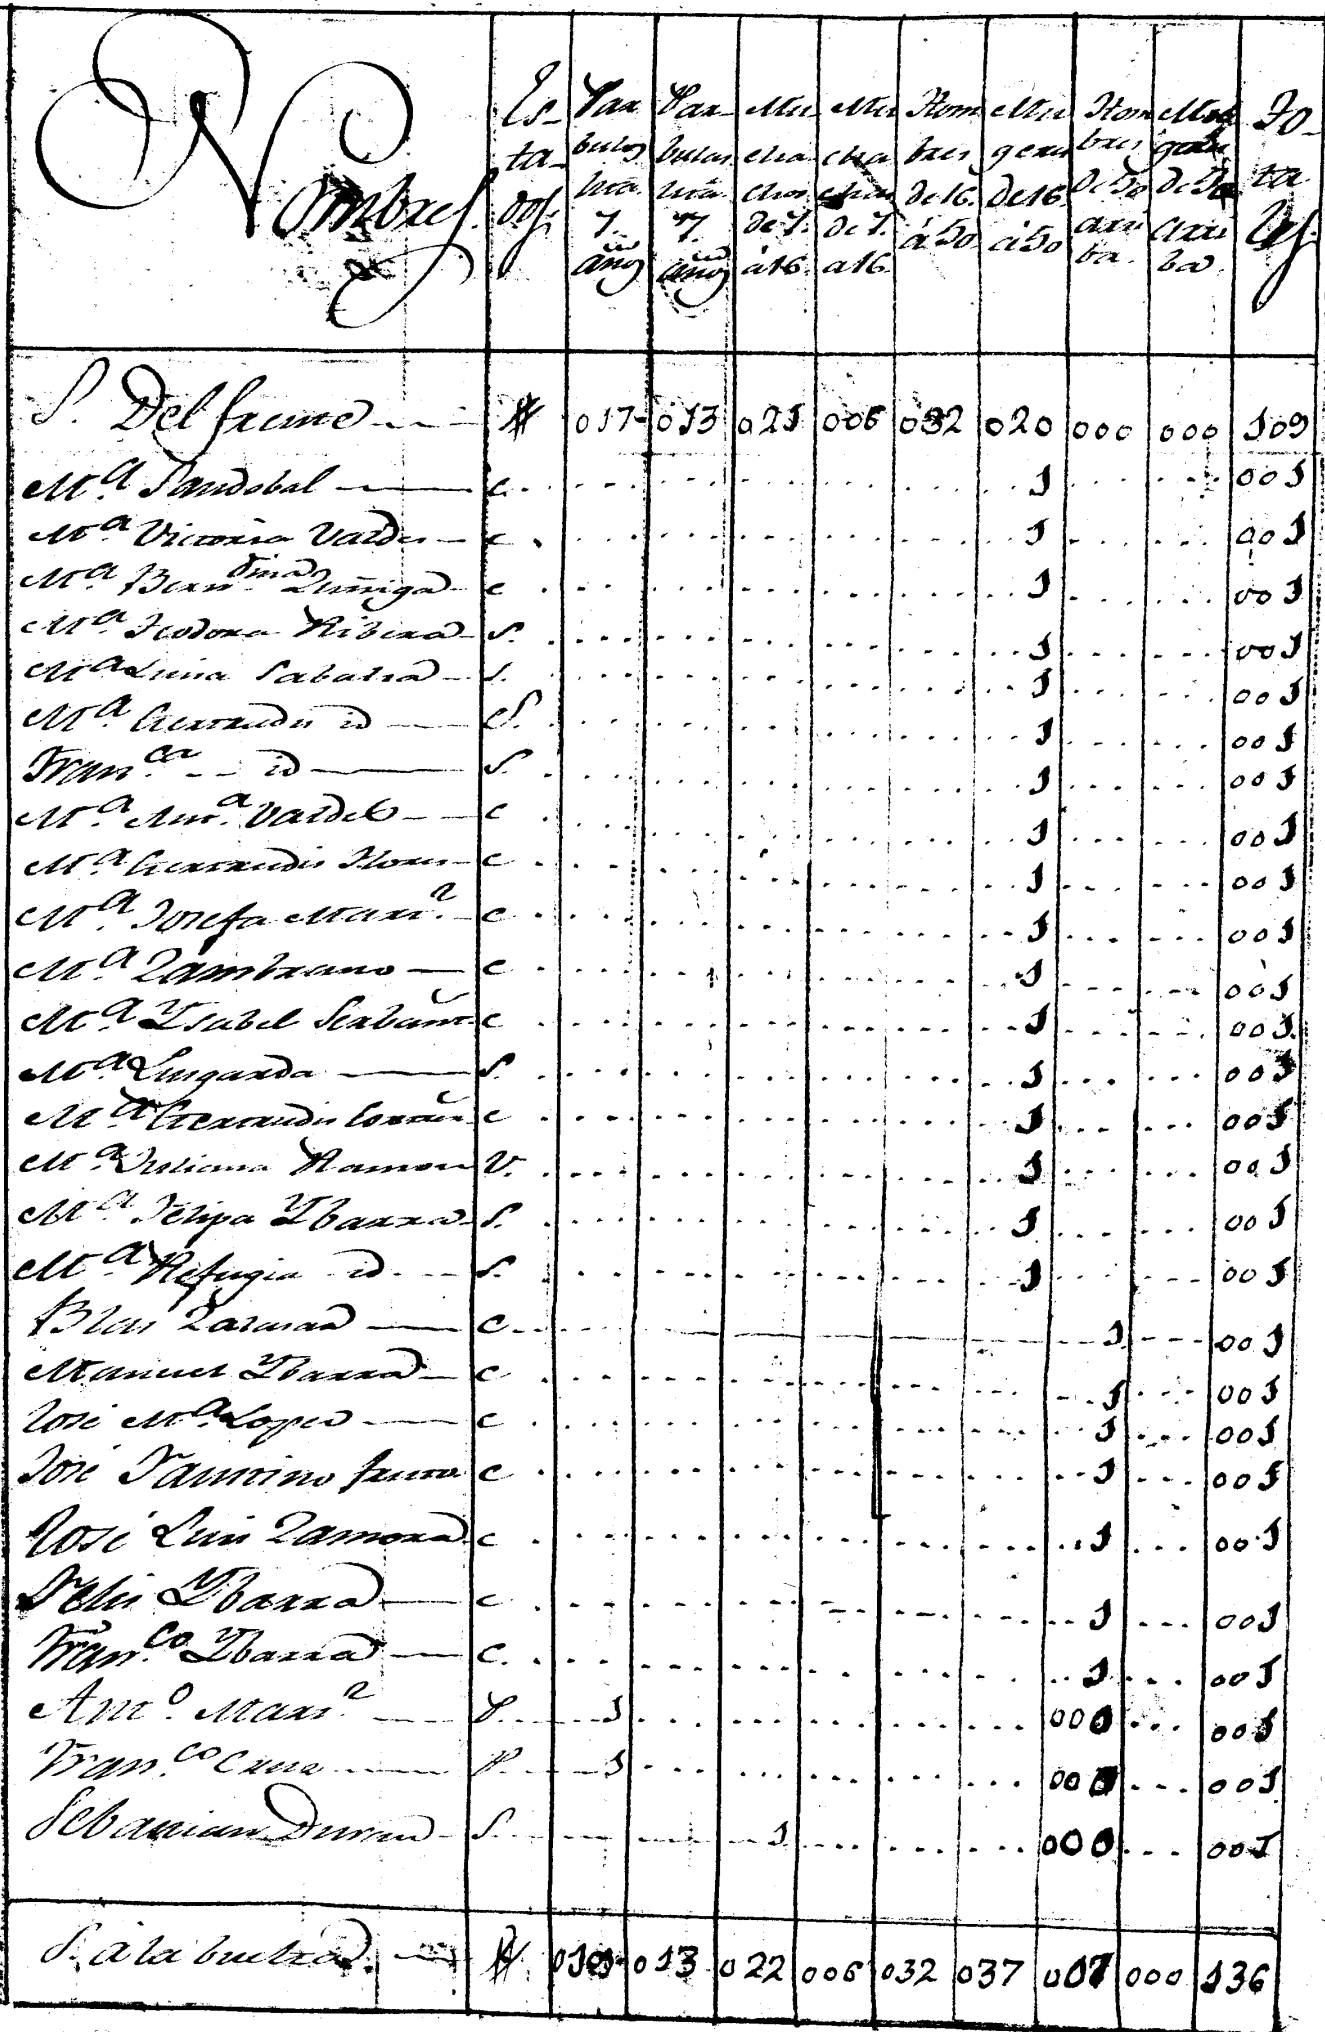 Nombres. Es-ta-dos. Par bulos hta. 7. años Par- bulas hta. 7. años Mu cha chos de 7. a 16. Mu cha chas de 7. a 16. Hom bres de 16. á 50 Mu geres de 16. á 50 Hom bres de 50 arri ba. Mu geres de 50 arri ba. To-ta les.
S. Del frente # 017 013 021 006 032 020 000 000 109
Ma. Sandobal c. 1 001
Ma. Victoria Valdes c. 1 001
Ma. Bernardina Zuñiga c 1 001
Ma. Teodora Ribera S. 1 001
Ma. Luisa S. 1 001
Ma. Gertrudis id S. 1 001
Franca. id S. 1 001
Ma. Anta. Valdes c 1 001
Ma. Gertrudis Flores c 1 001
Ma. Josefa Martz. c 1 001
Ma. Zambrano c 1 001
Ma. Ysabel c 1 001
Ma. Luigarda S. 1 001
Ma. Gertrudis c 1 001
Ma. Juliana Ramon V. 1 001
Ma. Felipa Ybarra S. 1 001
Ma. Refugia id. S. 1 001
Blas c 1 001
Manuel Ybarra c 1 001
José Ma. Lopes c 1 001
José Faustino c 1 001
José Luis Zamora c 1 001
Felis Ybarra c 1 001
Franco. Ybarra c. 1 001
Anto. Martz. P. 1 000 001
Franco. Cruz P. 1 000 001
Sebastian Duran S. 1 000 001
S. á la buelta # 019 013 022 006 032 037 007 000 136